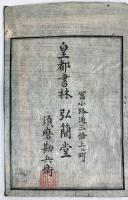 富小路通二條上ル町
皇都書林 弘簡堂
須磨勘兵衛